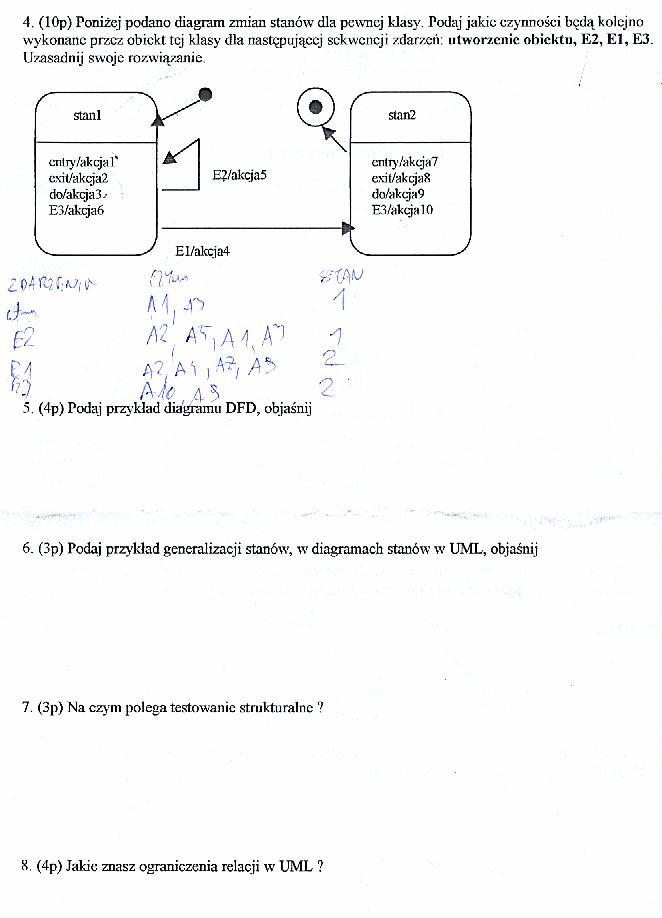 4. (10p) Poniżej podano diagram zmian stanów dla pewnej klasy. Podaj jakie czynności będą kolejno
wykonane przez obiekt tej klasy dla następującej sekwencji zdarzeń: utworzenie obiektu, E2, E1, E3.
Uzasadnij swoje rozwiązanie.
stan1
stan2
entry/akcja1
exit/akcja2
do/akcja3
E3/akcja6
E2/akcja5
entry/akcja7
exit/akcja8
do/akcja9
E3/akcja10
E1/akcja4
ZDARZENIA STAN
A1, A3 1
E2 A2, A5, A1, A3 1
E1 A2, A4, A7, A9 2
E3 A10, A9 2
5. (4p) Podaj przykład diagramu DFD, objaśnij
6. (3p) Podaj przykład generalizacji stanów, w diagramach stanów w UML, objaśnij
7. (3p) Na czym polega testowanie strukturalne ?
8. (4p) Jakie znasz ograniczenia relacji w UML ?